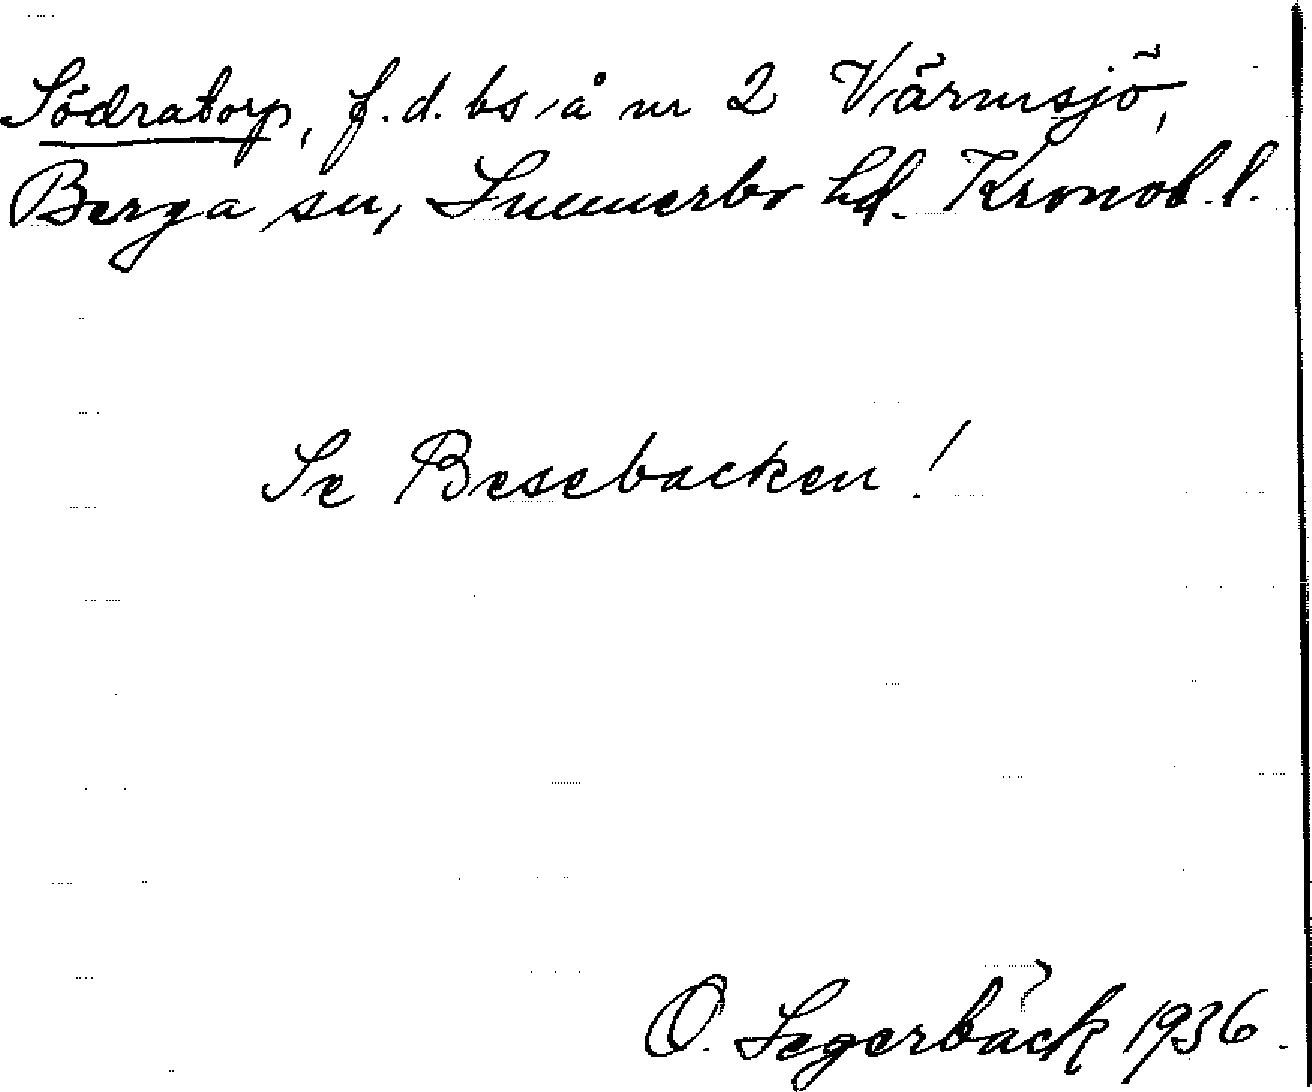 Södratorp, f.d. bs å nr 2 Värmsjö,
Berga sn, Sunnerbo hd. Kronob. l.
Se Besebacken!
O. Segerbäck 1936.